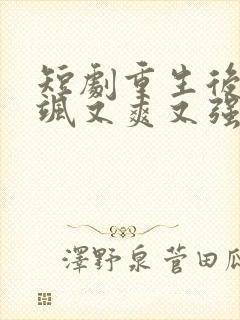 短劇重生後
颯又爽又强
澤野泉菅田